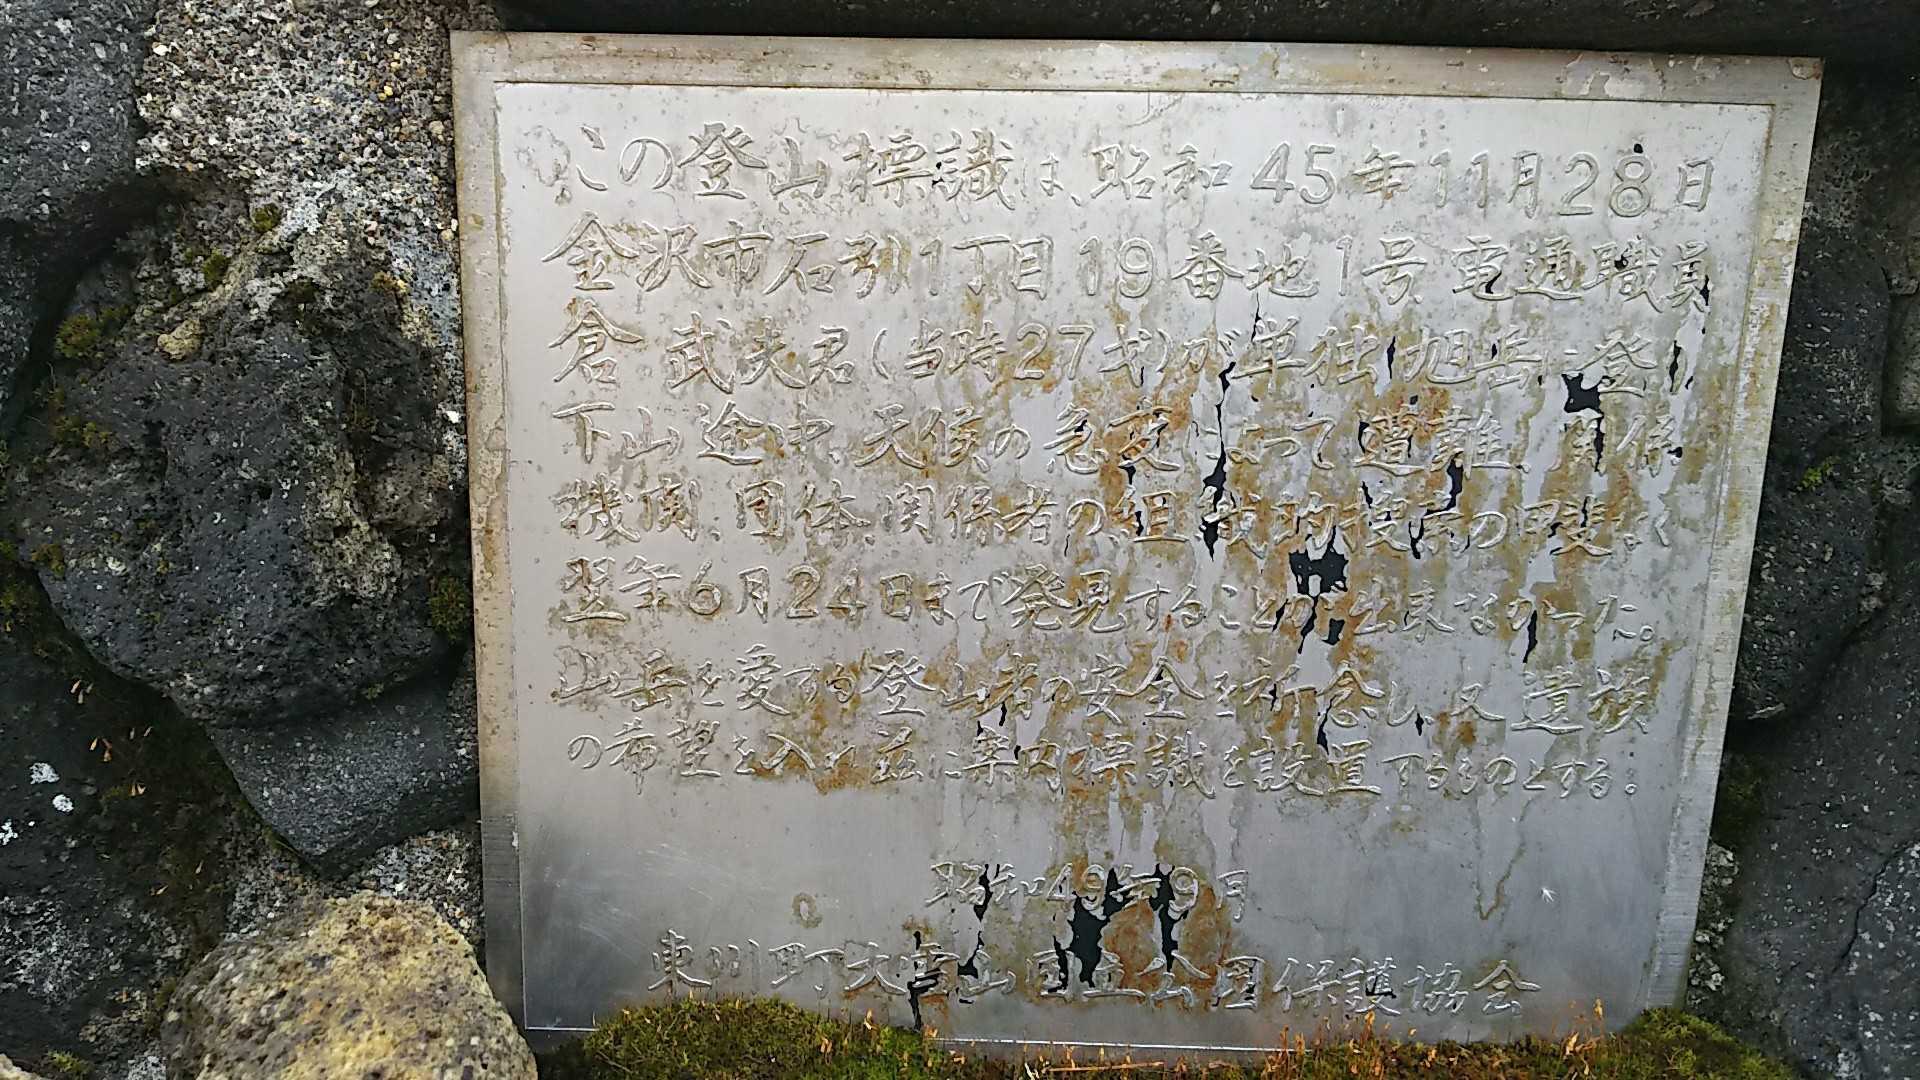 この登山標識は、昭和45年11月28日
金沢市石引1丁目19番地1号、電通職員
倉 武夫君(当時27才)が単独旭岳に登り
下山途中、天候の急変によって遭難、関係
機関、団体、関係者の組織的捜索の甲斐なく
翌年6月24日まで発見することが出来なかった。
山岳を愛する登山者の安全を祈念し、又遺族
の希望を入れ茲に案内標識を設置するものとする。
昭和49年9月
東川町大雪山国立公園保護協会